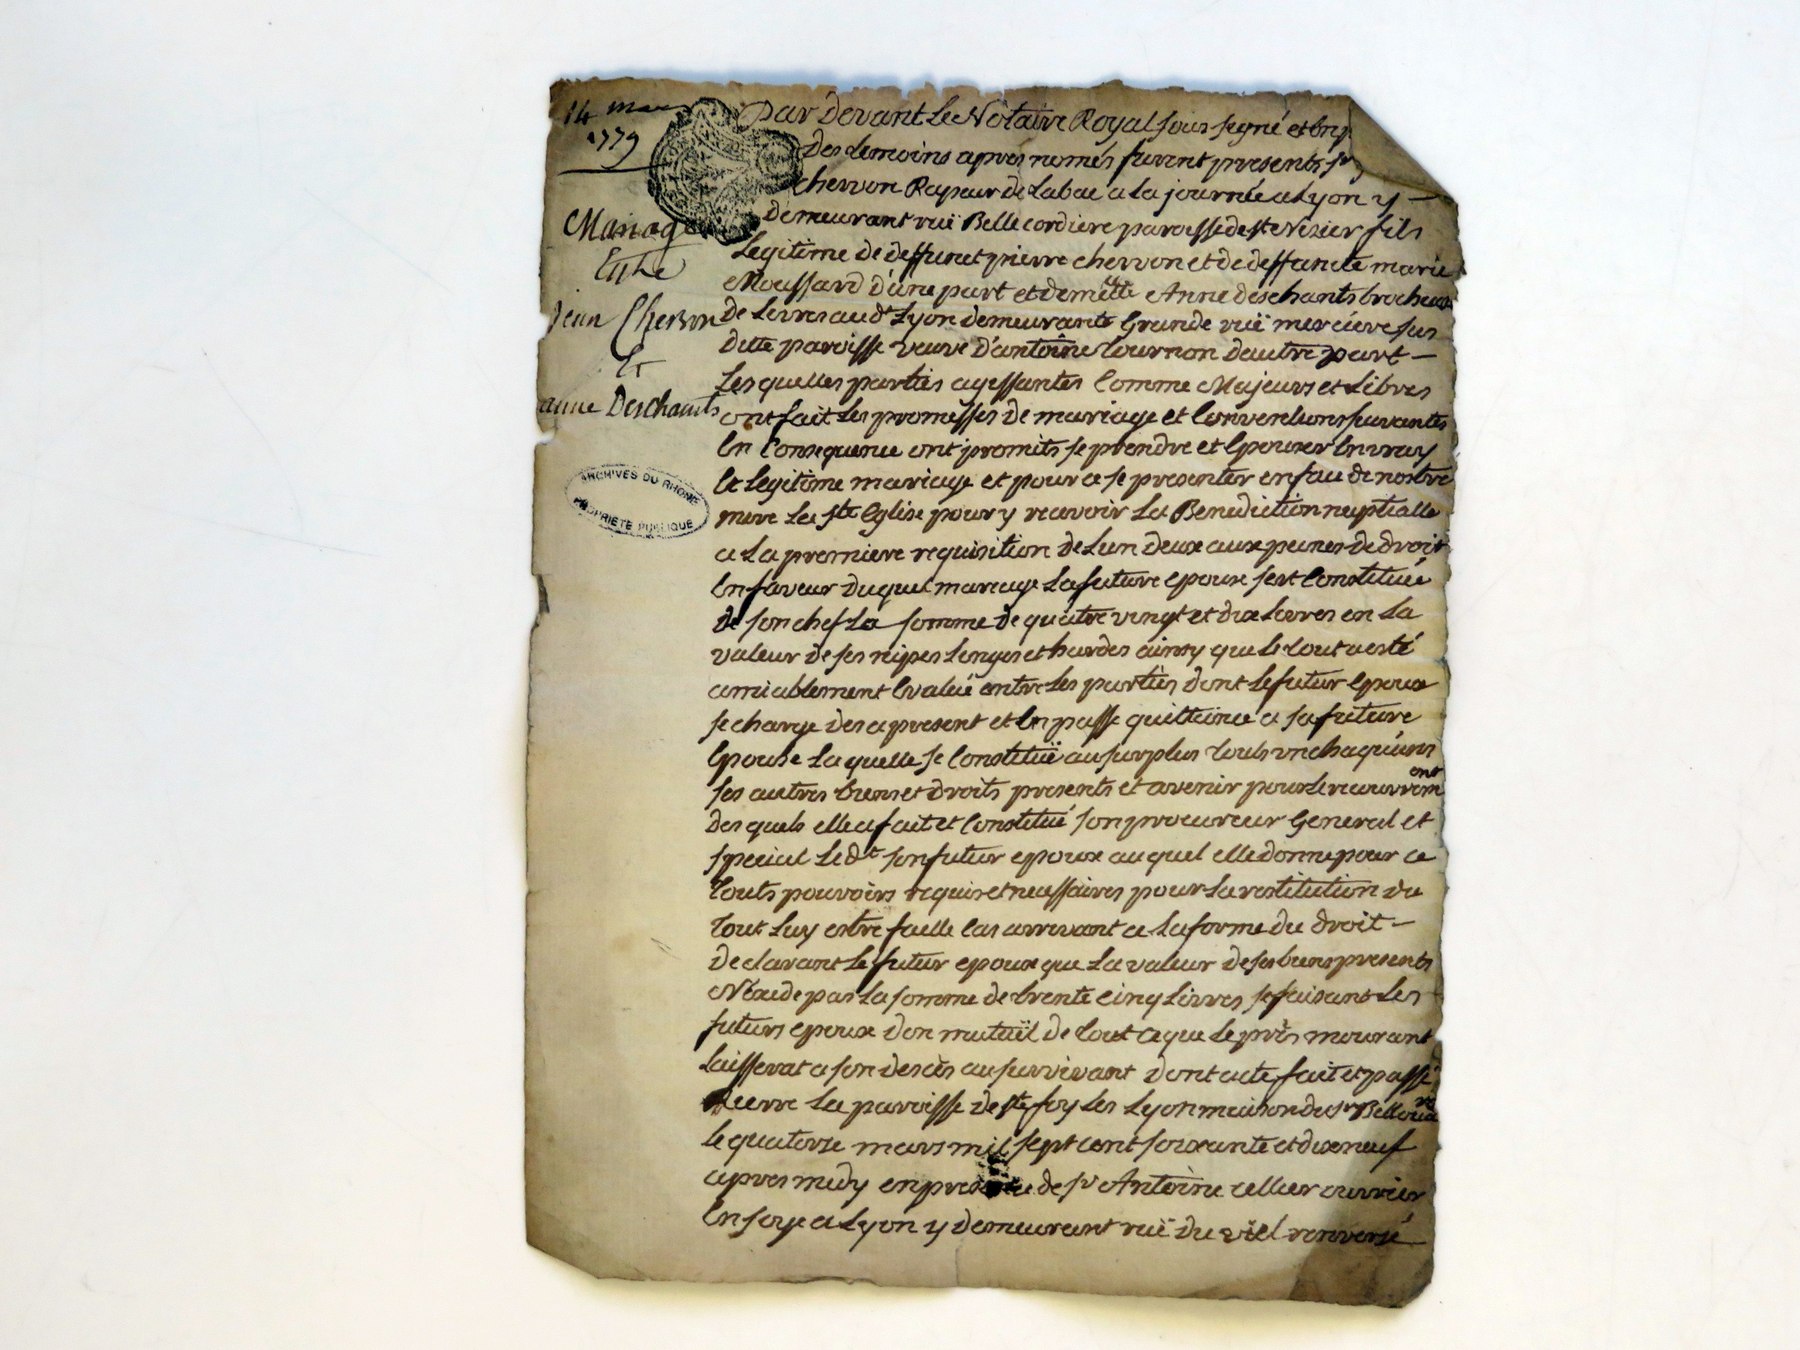 14 mars
1779
Mariage
Entre
Jean Chervon
Et
anne Deschamts
ARCHIVES DU RHONE
PROPRIETE PUBLIQUE
par devant Le Notaire Royal sous signé et En
des temoins apres només furent presents sr
chervon Rapeur de tabac a La journée a Lyon y
demeurant ruë Belle cordiere paroisse de st Nisier fils
Legitime de deffunct pierre chervon et de deffuncte marie
Moussard d'une part et demelle Anne deschants brocheuse
de Livres aud't Lyon demeurante Grande ruë merciere sus
ditte paroisse veuve d'antoine tournon dautre part
Les quelles parties agissantes Comme Majeurs et Libres
ont fait Les promesses de mariage et Conventions suivantes
En Consequence ont promits se prendre et Epouser En vray
Et Legitime mariage et pour ce se presenter en face de nostre
mere La ste Eglise pour y recevoir La Benediction nuptialle
a La premiere requisition de Lun deux aux peines de droit
En faveur duquel mariage La future epouse sest Constituée
de son chef La somme de quatre vingt et dix Livres en La
valeur de ses nipes Linges et hardes ainsy que Le tout a esté
amiablement Evalué entre Les parties dont Le futur Epoux
se charge des a present et En passe quittance a sa future
Epouse La quelle se Constituë au surplus touts un chaquuns
ses autres biens et droits presents et avenir pour Le recouvrement
des quels elle a fait et Constitué son procureur General et
special Le dt son futur epoux au quel elle donne pour ce
touts pouvoirs requis et necessaires pour La restitution du
tout Luy estre faitte Cas arrivant a La forme du droit
declarant Le futur epoux que La valeur de ses biens presents
N'exede pas La somme de trente cinq Livres se faisant Les
futurs epoux don mutuël de tout ce que Le près mourant
Laisserat a son desces au survivant dont acte fait et passé
La paroisse de ste foy Les Lyon maison du sr
le quatorze mars mil sept cent soixante et dixneuf
apres midy en presence de sr Antoine cellier ouvrier
En soye a Lyon y demeurant ruë du viel renversé